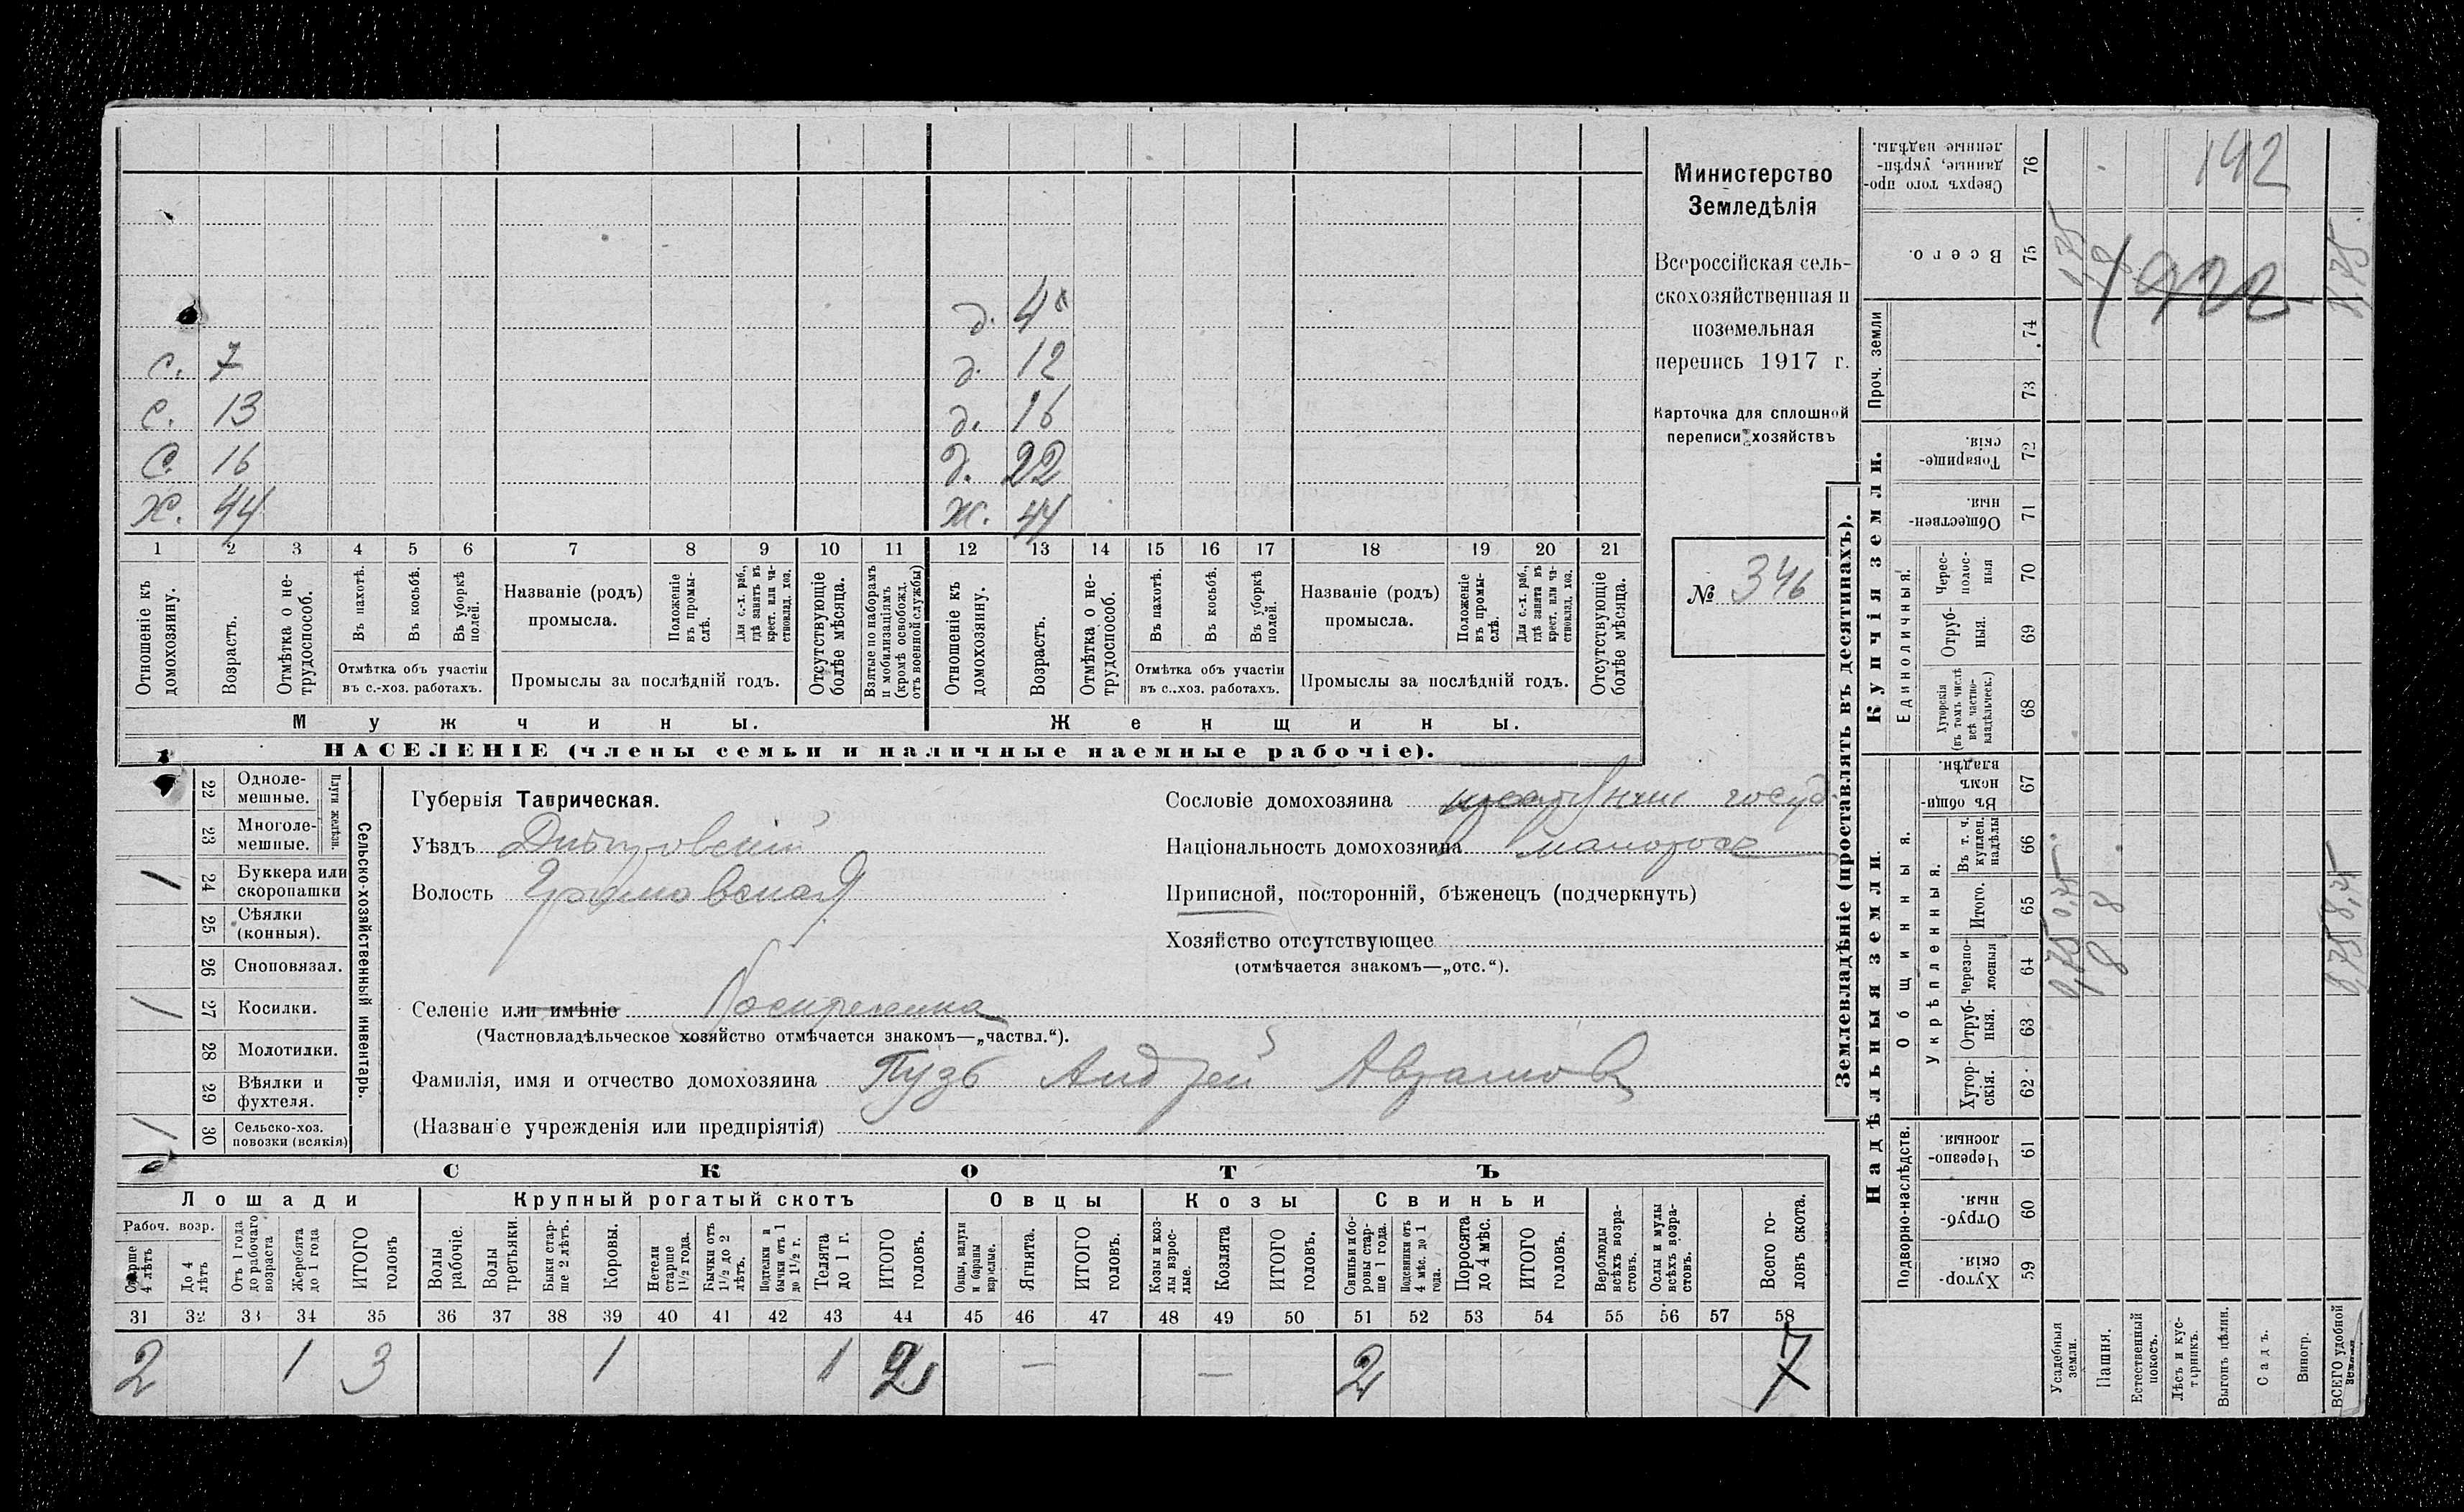 д. 4
с. 7 д. 12
с. 13 д. 16
с. 16 д. 22
х. 44 ж. 44
1 2 3 4 5 6 7 8 9 10 11 12 13 14 15 16 17 18 19 20 21
Отношеніе къ домохозяину.
Возрастъ.
Отмѣтка о не-трудоспособ.
Въ пахотѣ.
Въ косьбѣ.
Въ уборкѣ полей.
Отмѣтка объ участіи
въ с.-хоз. работахъ.
Названіе (родъ)
промысла.
Положеніе въ промы-слѣ.
Для с.-х. раб., гдѣ занятъ въ крест. или ча-стновлад. хоз.
Промыслы за послѣдній годъ.
Отсутствующіе болѣе мѣсяца.
Взятые по наборамъ и мобилизаціямъ (кромѣ освобожд. отъ военной службы)
Отношеніе къ домохозяину.
Возрастъ.
Отмѣтка о не-трудоспособ.
Въ пахотѣ.
Въ косьбѣ.
Въ уборкѣ полей.
Отмѣтка объ участіи
въ с.-хоз. работахъ.
Названіе (родъ)
промысла.
Положеніе въ промы-слѣ.
Для с.-х. раб., гдѣ занята въ крест. или ча-стновлад. хоз.
Промыслы за послѣдній годъ.
Отсутствующіе болѣе мѣсяца.
Мужчины. Женщины.
НАСЕЛЕНІЕ (члены семьи и наличные наемные рабочіе).
Министерство
Земледѣлія
Всероссійская сель-
скохозяйственная и
поземельная
перепись 1917 г.
Карточка для сплошной
переписи хозяйствъ
№ 346
22 Одноле-мешные.
23 Многоле-мешные.
Плуги желѣзн.
24 Буккера или скоропашки 1
25 Сѣялки (конныя).
26 Сноповязал.
27 Косилки. 1
28 Молотилки.
29 Вѣялки и фухтеля.
30 Сельско-хоз. повозки (всякія) 1
Сельско-хозяйственный инвентарь.
Губернія Таврическая.
Уѣздъ Днѣпровскій
Волость Громовская
Селеніе или имѣніе Воскресенка
(Частновладѣльческое хозяйство отмѣчается знакомъ—„частвл.“).
Фамилія, имя и отчество домохозяина Пузь Андрей Аврамов
(Названіе учрежденія или предпріятія)
Сословіе домохозяина госуд.
Національность домохозяина малоросс
Приписной, посторонній, бѣженецъ (подчеркнуть)
Хозяйство отсутствующее
(отмѣчается знакомъ—„отс.“).
СКОТЪ
Лошади Крупный рогатый скотъ Овцы Козы Свиньи
Рабоч. возр.
Старше 4 лѣтъ
До 4 лѣтъ
Отъ 1 года до рабочаго возраста
Жеребята до 1 года
ИТОГО головъ
Волы рабочіе.
Волы третьяки.
Быки стар-ше 2 лѣтъ.
Коровы.
Нетели старше 1½ года.
Бычки отъ 1½ до 2 лѣтъ.
Подтелки и бычки отъ 1 до 1½ г.
Телята до 1 г.
ИТОГО головъ.
Овцы, валухи и бараны взрослые.
Ягнята.
ИТОГО головъ.
Козы и коз-лы взрос-лые.
Козлята
ИТОГО головъ.
Свиньи и бо-ровы стар-ше 1 года.
Подсвинки отъ 4 мѣс. до 1 года.
Поросята до 4 мѣс.
ИТОГО головъ.
Верблюды всѣхъ возра-стовъ.
Ослы и мулы всѣхъ возра-стовъ.
Всего го-ловъ скота.
31 32 33 34 35 36 37 38 39 40 41 42 43 44 45 46 47 48 49 50 51 52 53 54 55 56 57 58
2 1 3 1 1 2 — — 2 7
Землевладѣніе (проставлять въ десятинахъ).
Надѣльныя земли. Купчія земли. Проч. земли
Подворно-наслѣдств. Общинныя. Укрѣпленныя. Единоличныя.
Хутор-скія. 59
Отруб-ныя. 60
Черезпо-лосныя. 61
Хутор-скія. 62
Отруб-ныя. 63
Черезпо-лосныя 64
Итого. 65
Въ т. ч. куплен. надѣлы 66
Въ общи-номъ владѣн. 67
Хуторскія (въ томъ числѣ всѣ частно-владѣльческ.) 68
Отруб-ныя. 69
Черес-полос-ныя 70
Обществен-ныя. 71
Товарище-скія. 72
73
74
Всего. 75
Сверхъ того про-данные, укрѣп-ленные надѣлы. 76
Усадебныя земли. 0,75 0,75
Пашня. 8 8
Естественный покосъ.
Лѣсъ и кус-тарникъ.
Выгонъ цѣлин.
Садъ.
Виногр.
ВСЕГО удобной земли 8,75 8,75
142
922